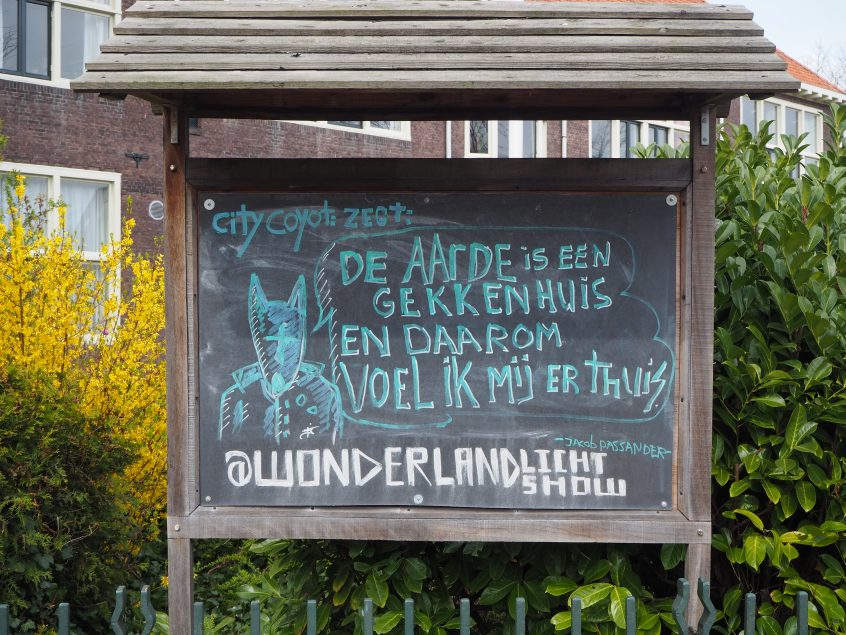 city coyote zegt:
DE AARDE is EEN
GEKKENHUIS
EN DAAROM
VOEL iK Mij ER thuis.
- Jacob PASSANDER
@WONDERLAND LICHT
SHOW